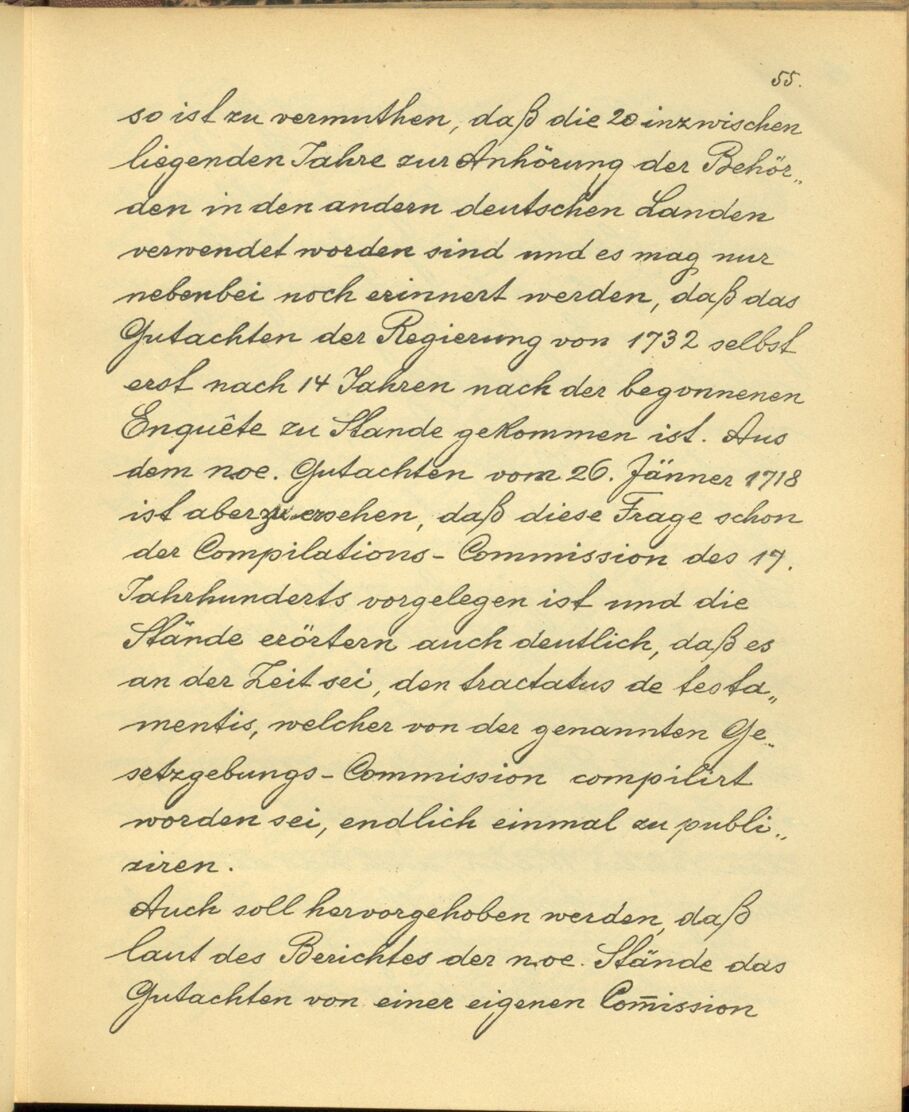 55.
so ist zu vermuthen, daß die 20 inzwischen
liegenden Jahre zur Anhörung der Behör„
den in den andern deutschen Landen
verwendet worden sind und es mag nur
nebenbei noch erinnert werden, daß das
Gutachten der Regierung von 1732 selbst
erst nach 14 Jahren nach der begonnenen
Enquête zu Stande gekommen ist. Aus
dem noe. Gutachten vom 26. Jänner 1718
ist aber zu ersehen, daß diese Frage schon
der Compilations-Commission des 17.
Jahrhunderts vorgelegen ist und die
Stände erörtern auch deutlich, daß es
an der Zeit sei, den tractatus de testa„
mentis, welcher von der genannten Ge„
setzgebungs-Commission compilirt
worden sei, endlich einmal zu publi„
ziren.
Auch soll hervorgehoben werden, daß
laut des Berichtes der noe. Stände das
Gutachten von einer eigenen Com̅ission